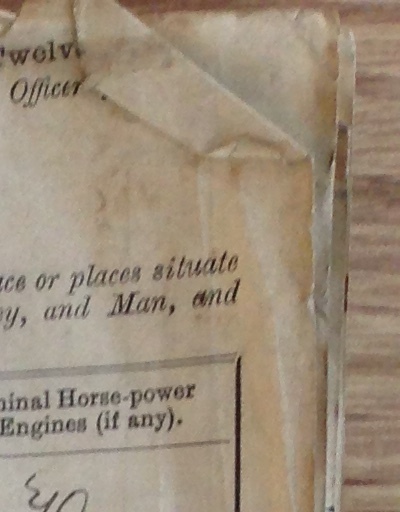 Twelve
Officer
ace or places situate
ey, and Man, and
ninal Horse-power
Engines (if any).